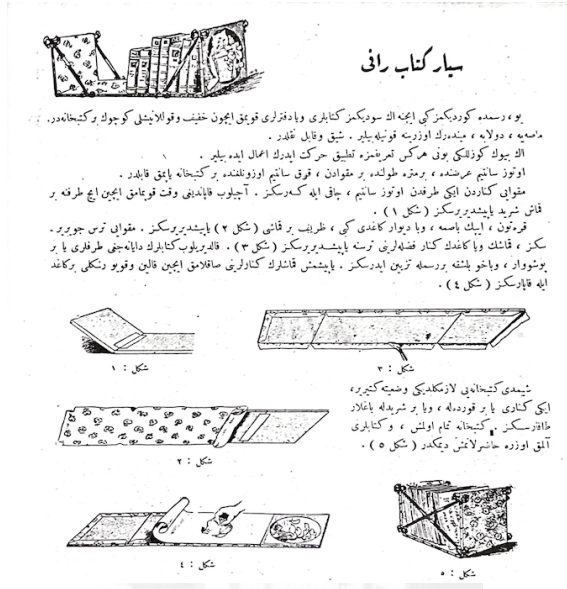 سيار كتاب رافى
بو ، رسمده كورديكمز كبى ايچنه اك سوديكمز كتابلرى ويا دفترلرى قويمق ايچون خفيف وقوللانيشلى كوچوك بر كتبخانه‌در.
ماصه‌يه ، دولابه ، ميندرك اوزرينه قونيله‌بيلير . شيق وقابل نقلدر .
اك بيوك كوزللكى بونى هركس تعريفمزه تطبيق حركت ايدرك اعمال ايده بيلير .
اوتوز سانتيم عرضنده ، بر متره طولنده بر مقوادن ، قرق سانتيم اوزونلغنده بر كتبخانه ياپمق قابلدر .
مقوايى كناردن ايكى طرفدن اوتوز سانتيم ، چاقى ايله كسه‌رسكز . آچيلوب قاپانديغى وقت قوپمامق ايچين ايچ طرفنه بر
قماش شريد ياپيشديررسكز ( شكل ١ ) .
قره‌تون ، ايپك باصمه ، ويا ديوار كاغدى كبى ، ظريف بر قماشى ( شكل ٢ ) ياپيشديررسكز . مقوايى ترس چويرير .
سكز ، قماشك ويا كاغدك كنار فضله‌لرينى ترسنه ياپيشديررسكز ( شكل ٣ ) . قالديريلوب كتابلرك دايانه‌جغى طرفلرى يا بر
پوشووار ، وياخو بلشقه بررسمله تزيين ايدرسكز . ياپيشمش قماشلرك كنارلرينى صاقلامق ايچين قالين وقويو رنكلى بر كاغد
ايله قاپارسكز ( شكل ٤ ) .
شكل : ١
شكل : ٣
شيمدى كتبخانه‌يى لازمكلديكى وضعيته كتيرير ،
ايكى كنارى يا بر قوردله ، ويا بر شريدله باغلار
طاقارسكز . كتبخانه تمام اولمش ، وكتابلرى
آلمق اوزره حاضرلانمش ديمكدر ( شكل ٥ ) .
شكل : ٢
شكل : ٤
شكل : ٥